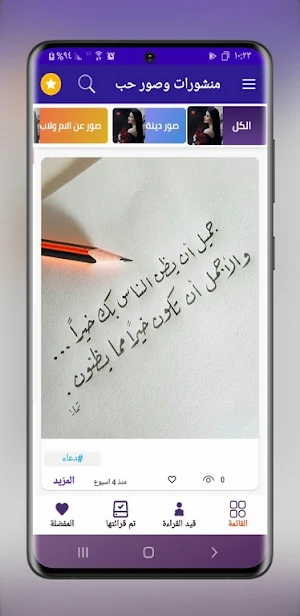 %٩٤ ١٠:٢٣
منشورات وصور حب
الكل
صور دينة
صور عن الام ولاب
جميل أن يظن الناس بك خيراً...
والأجمل أن تكون خيراً مما يظنون.
#دعاء
0
منذ 4 اسبوع
المزيد
القائمة
قيد القراءة
تم قرائتها
المفضلة